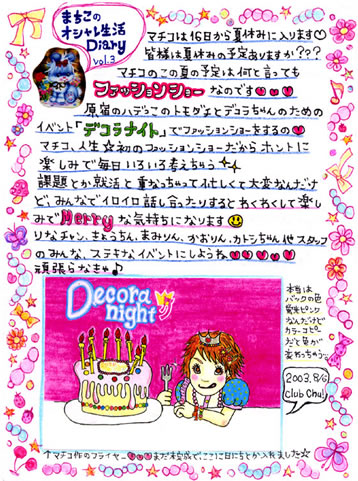 まちこの
オシャレ生活
Diary
vol.3
マチコは16日から夏休みに入ります♡
皆様は夏休みの予定ありますか???
マチコのこの夏の予定は何と言っても
ファッションショーなのです♥♥
原宿のハデっこのトモダチとデコラちゃんのための
イベント「デコラナイト」でファッションショーをするの♥♥
マチコ、人生☆初のファッションショーだからホントに
楽しみで毎日いろいろ考えちゃう
課題とか就活と重なっちゃって忙しくて大変なんだけ
ど、みんなでイロイロ話し合ったりするとわくわくして楽し
みでMerryな気持ちになります
りなチャン、きょうちん、まみりん、かおりん、カトシちゃん他スタッフ
のみんな、ステキなイベントにしようね♥♥♥♥♥
頑張らなきゃ♪
Decora
night
本当は
バックの色
蛍光ピンク
なんだけど
カラーコピー
だと色が
変わっちゃう
2003.8/6
Club Chu!
↑マチコ作のフライヤー♥♥♥まだ未完成でここに日にちとか入れました☆